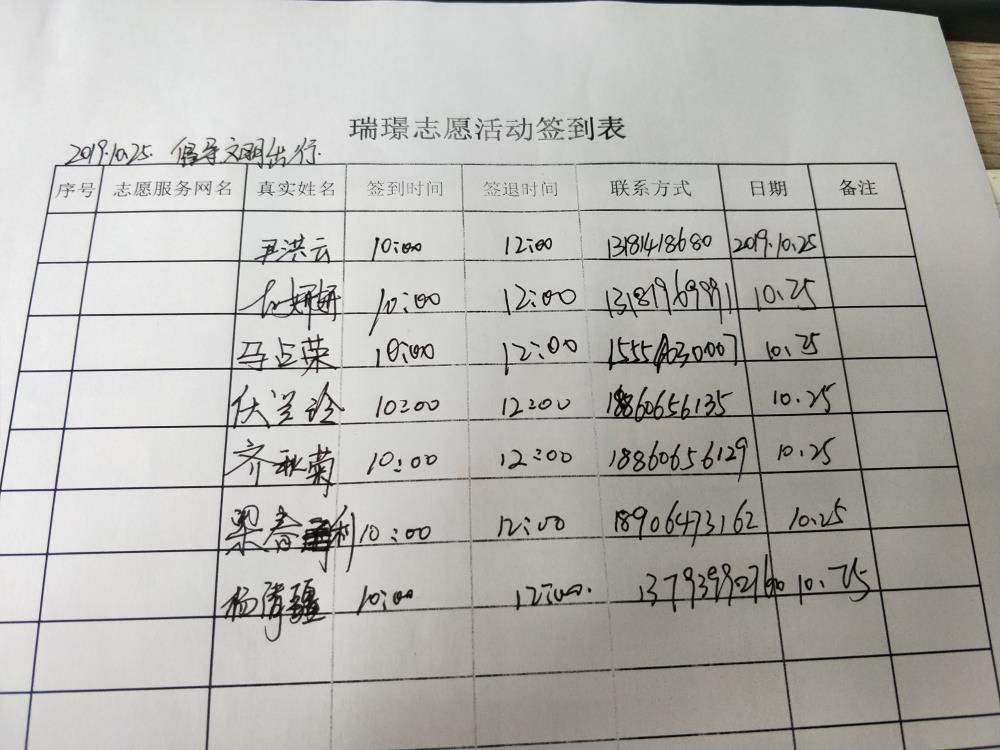 瑞璟志愿活动签到表
2019.10.25. 倡导文明出行.
序号 志愿服务网名 真实姓名 签到时间 签退时间 联系方式 日期 备注
尹洪云 10:00 12:00 13181418680 2019.10.25
10:00 12:00 13181969991 10.25
马占荣 10:00 12:00 10.25
伏兰玲 10:00 12:00 18860656135 10.25
齐秋菊 10:00 12:00 18860656129 10.25
梁春利 10:00 12:00 18906473162 10.25
杨清疆 10:00 12:00. 10.25